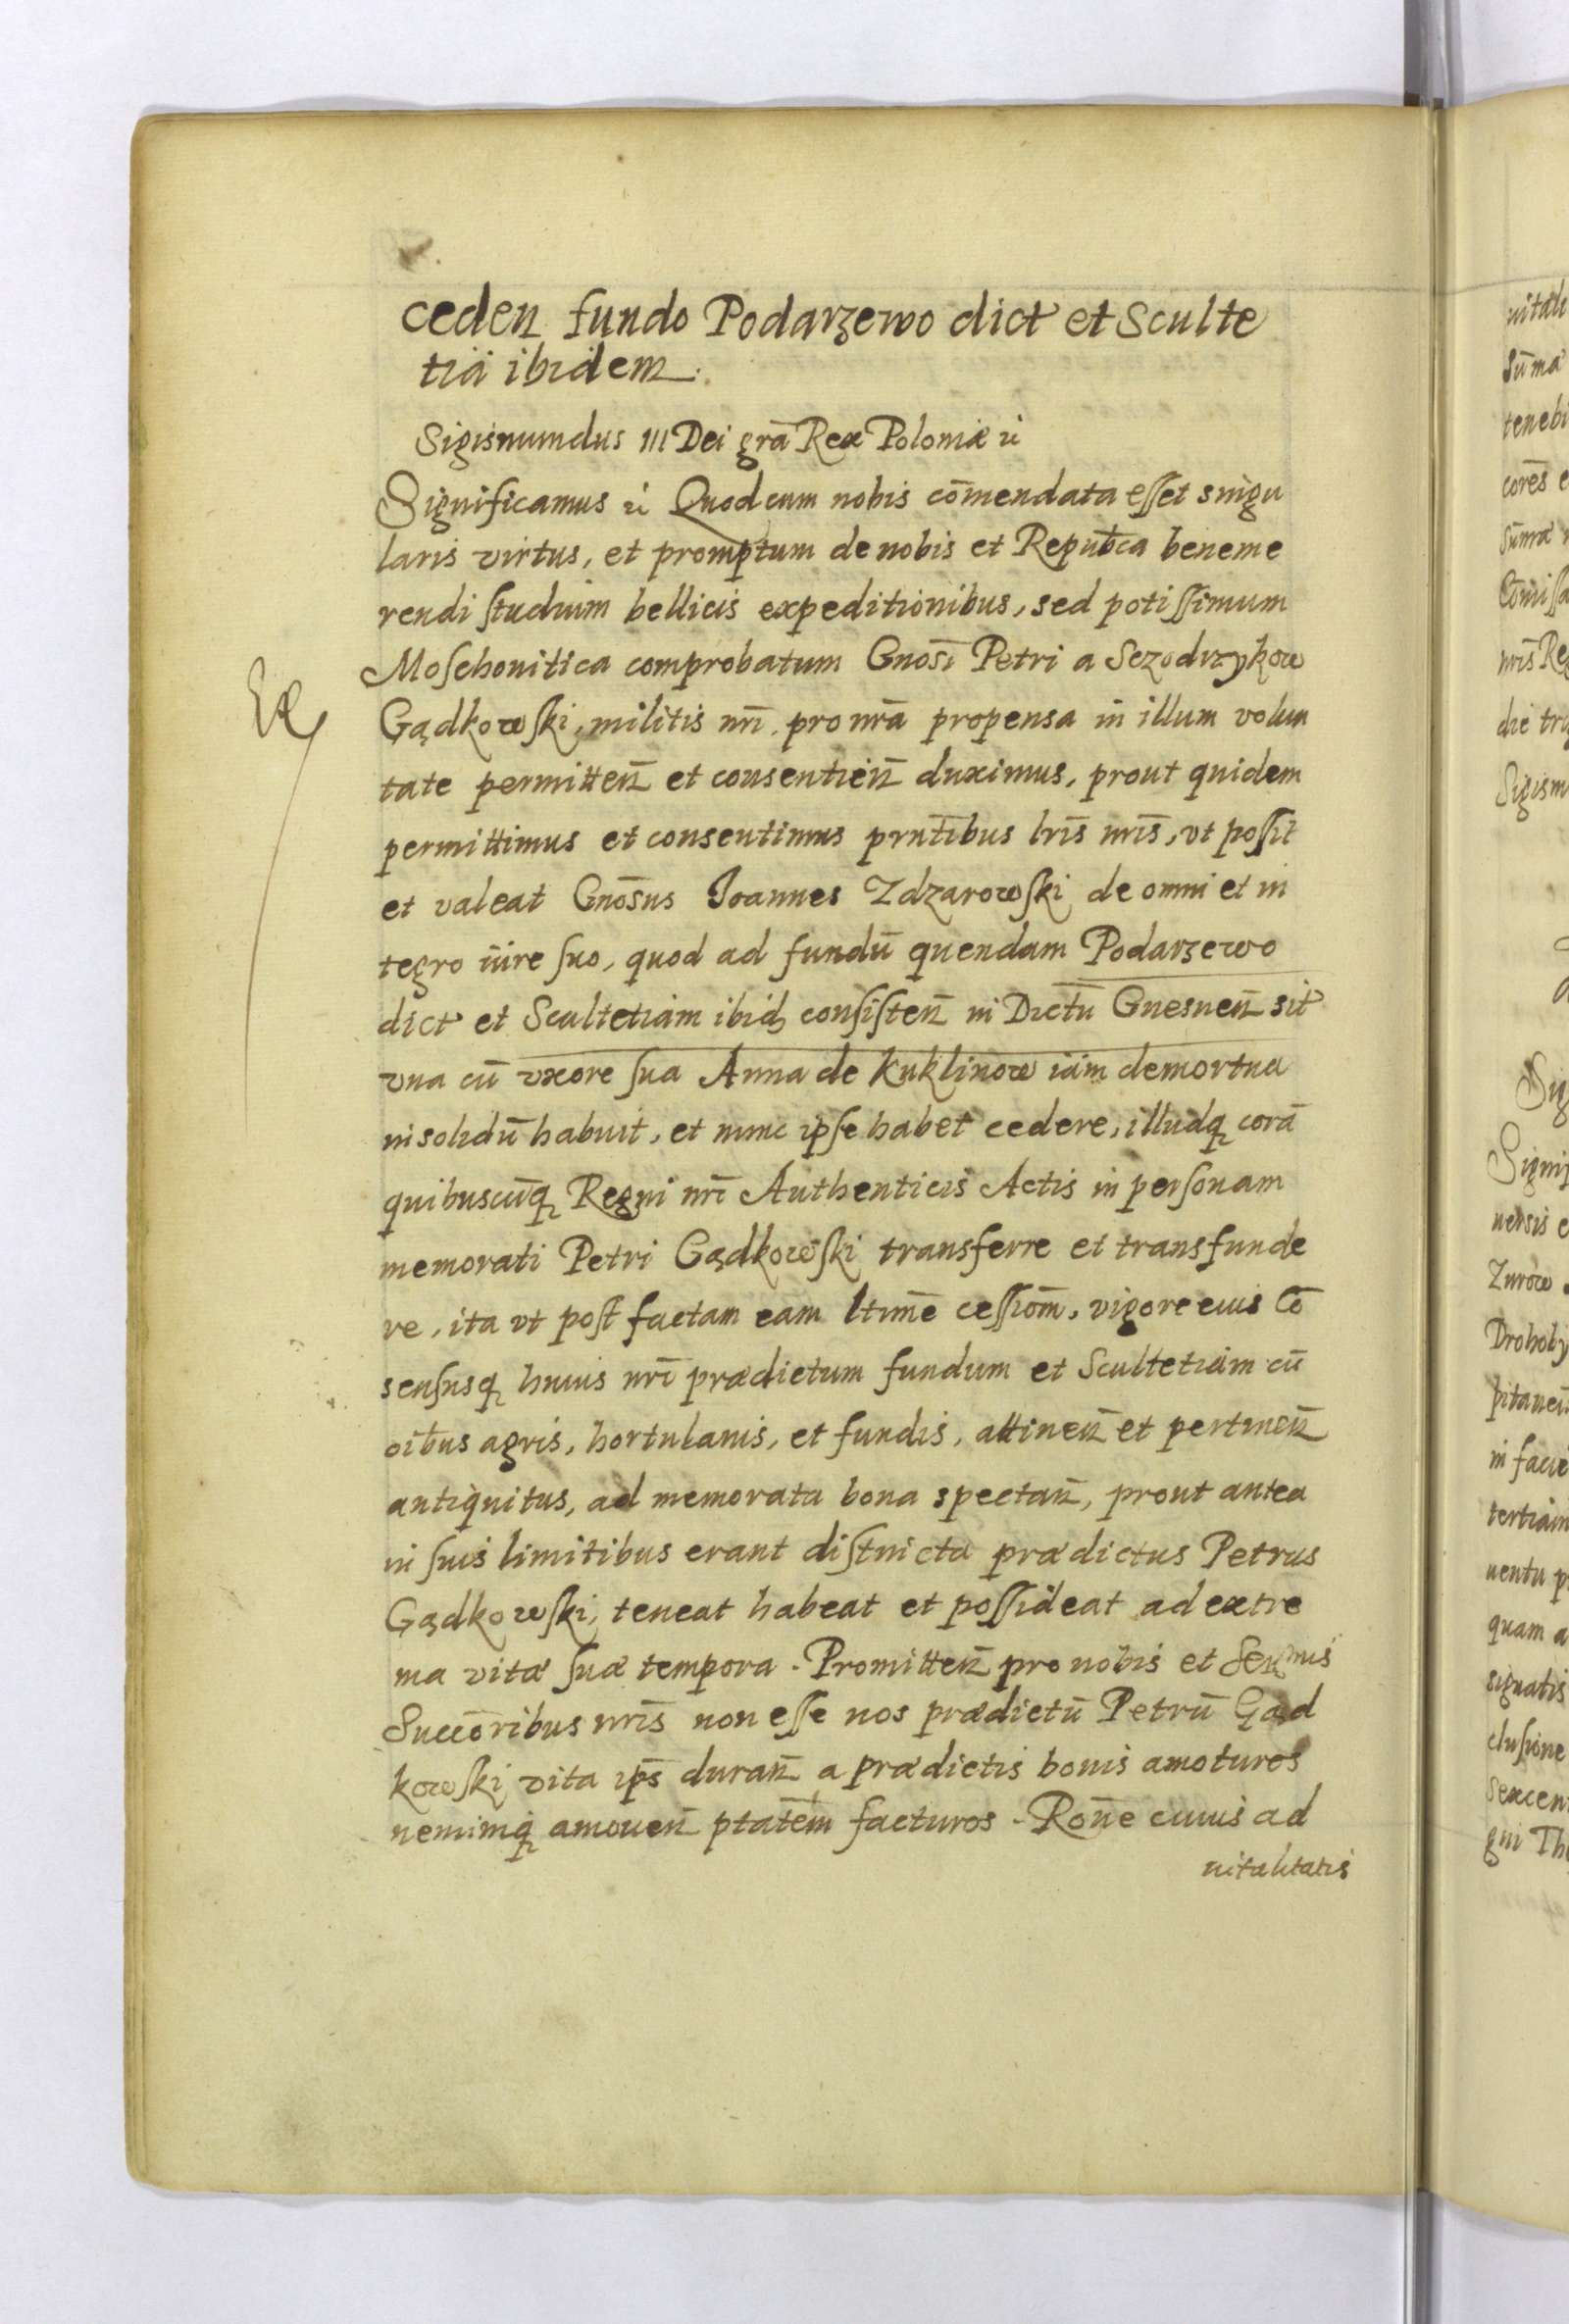 ceden fundo Podarzewo dict et Sculte
tiā ibidem.
Sigismundus III Dei grā Rex Poloniæ ⁊c
Significamus ⁊c Quod cum nobis cōmendata esset singu
laris virtus, et promptum de nobis et Repubca beneme
rendi studium bellicis expeditionibus, sed potissimum
Moschouitica comprobatum Gnosī Petri a Sczodrzykow
Gądkowski, militis nrī, pro nrā propensa in illum volun
tate permitten̄ et consentien̄ duximus, prout quidem
permittimus et consentimus prntībus lrīs nrīs, vt possit
et valeat Gnōsus Joannes Zdzarowski de omni et in
tegro iure suo, quod ad fundū quendam Podarzewo
dict et Scultetiam ibid consisten̄ in Dictū Gnesnen̄ sit
vna cū vxore sua Anna de Kuklinow iam demortua
in solidū habuit, et nunc ipse habet cedere, illudq corā
quibuscūq Regni nrī Authenticis Actis in personam
memorati Petri Gądkowski transferre et transfunde
re, ita vt post factam eam ltimē cessiom̄, vigore eius Cō
sensusq huius nrī prædictum fundum et Scultetiam cū
oībus agris, hortulanis, et fundis, attinen̄ et pertinen̄
antiquitus, ad memorata bona spectan̄, prout antea
in suis limitibus erant distincta prædictus Petrus
Gądkowski, teneat habeat et possideat ad extre
ma vitæ suæ tempora. Promitten̄ pro nobis et Sermis
Succōribus nrīs non esse nos prædictū Petrū Gąd
kowski vita ips̄ duran̄ a prædictis bonis amoturos
neminiq amouen̄ ptatem̄ facturos. Ron̄e cuius ad
uitalitatis
uitali
Sūma
tenebi
cores̄ e
Sūmæ
Cōmissa
nrīs Re
die tri
Sigism
Sig
Signif
uersis e
Zurow
Drohoby
pitanei
in facie
tertiam
uentu p
quam a
signatis
clusione
sexcen
gni Th